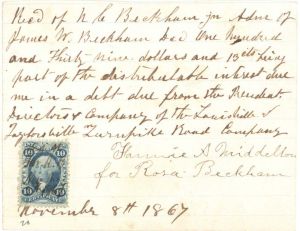 Recd of N C Beckham jr Admr of
James W. Beckham Decd One hundred
and Thirty nine dollars and 13 cts being
part of the distributable interest due
me in a debt due from the President
Directors & Company of the Louisville &
Taylorsville Turnpike Road Company
Fannie A Middelton
for Rosa Beckham
10 10
November 8th 1867